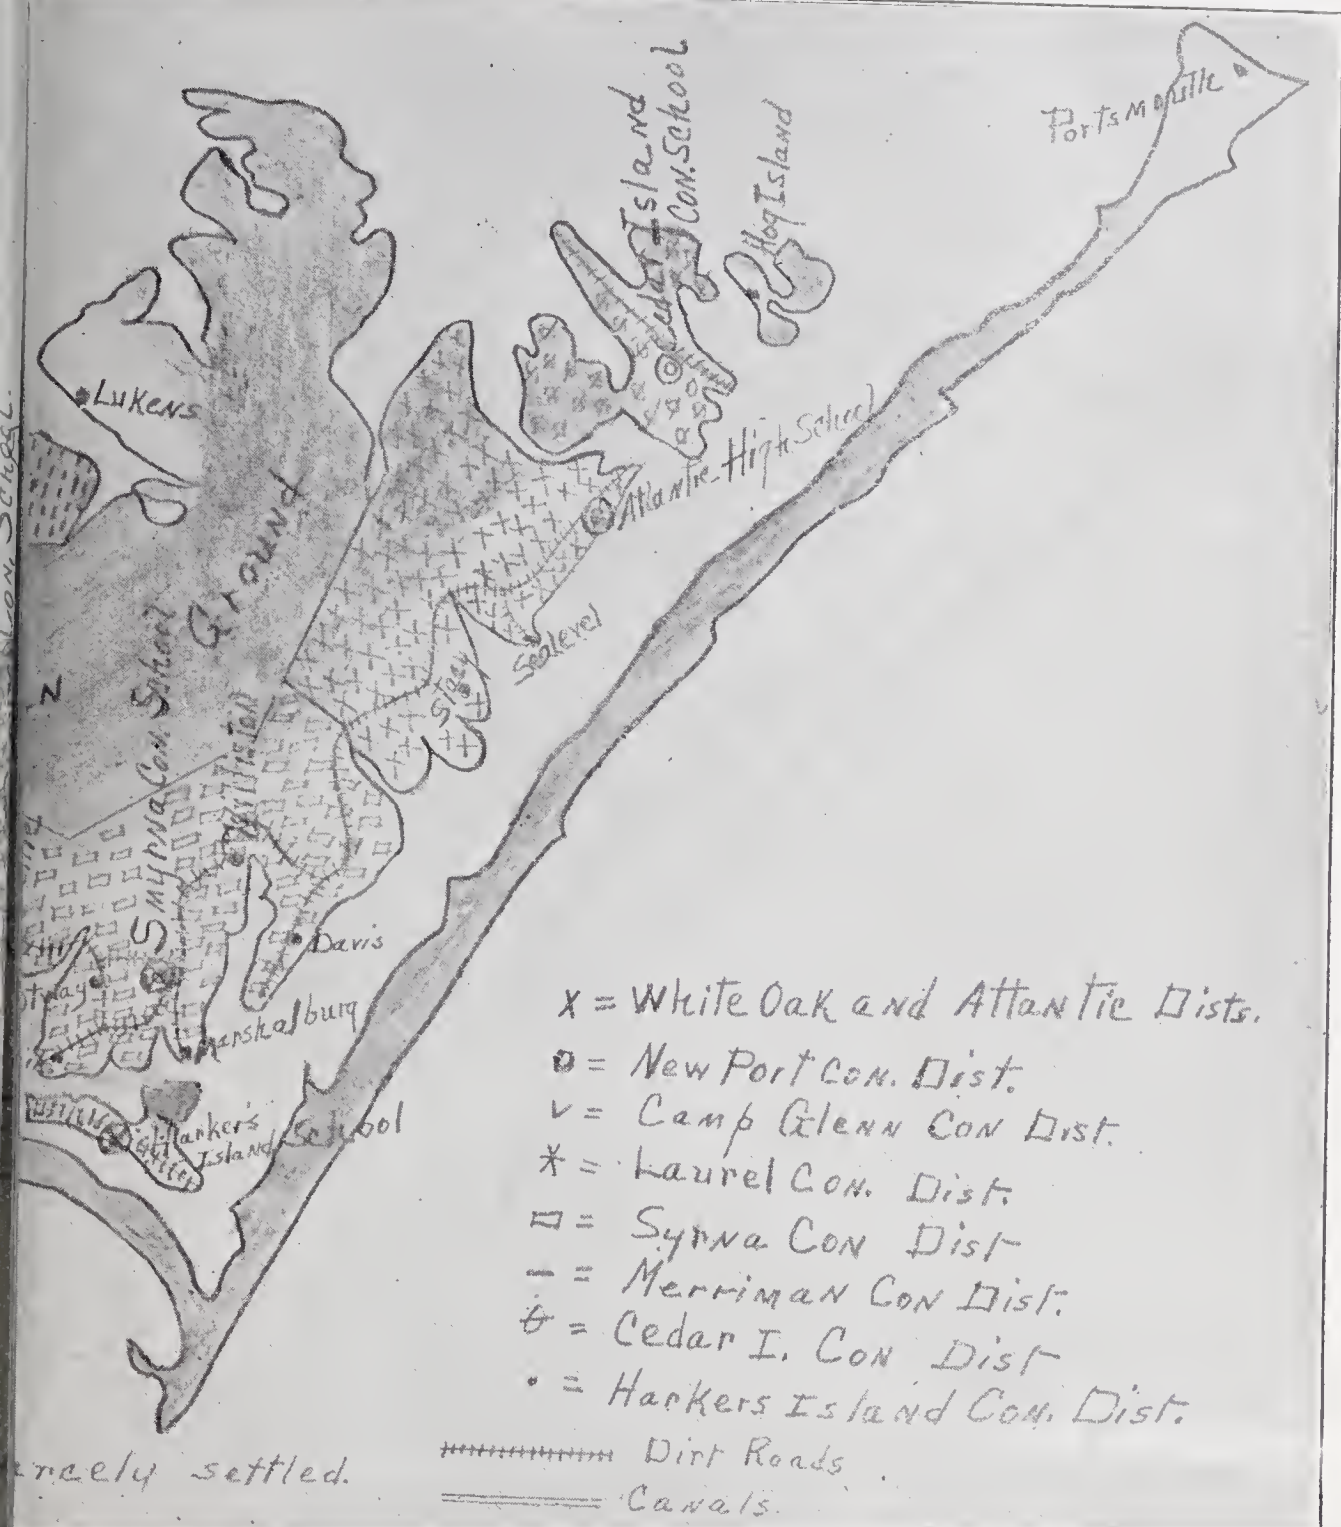 Portsmouth
Island
Con. School
Cedar
Hog Island
Lukens
Atlantic High School
Ground
Sealevel
Stacy
N
Smyrna Con. School
Williston
Davis
Marshalburg
Harker's
Island School
Con. School.
X = White Oak and Atlantic Dists.
o = New Port Con. Dist.
v = Camp Glenn Con Dist.
* = Laurel Con. Dist.
▭ = Syrna Con Dist
– = Merriman Con Dist.
= Cedar I. Con Dist
• = Harkers Island Con. Dist.
Dirt Roads
settled.
Canals.